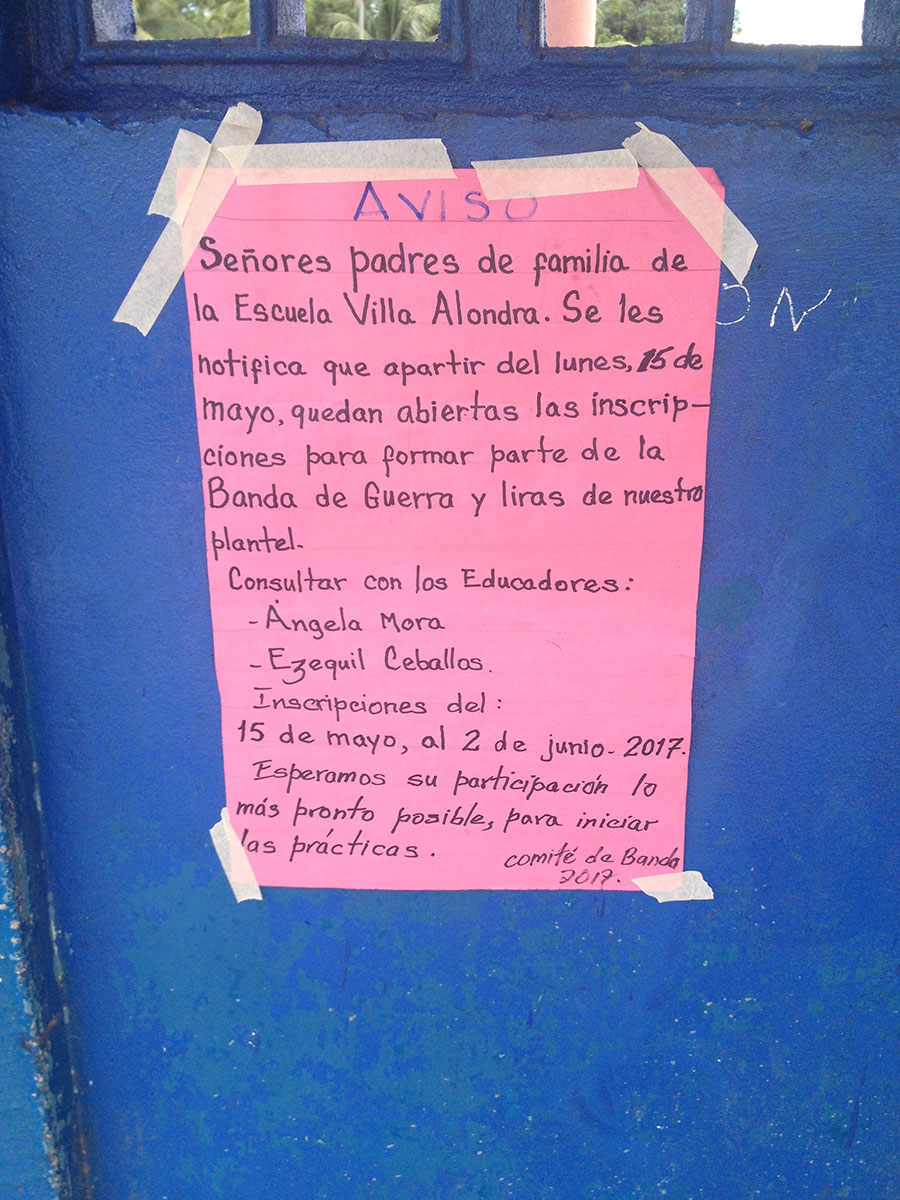 AVISO
Señores padres de familia de
la Escuela Villa Alondra. Se les
notifica que apartir del lunes, 15 de
mayo, quedan abiertas las inscrip-
ciones para formar parte de la
Banda de Guerra y liras de nuestro
plantel.
Consultar con los Educadores:
- Ángela Mora
- Ezequil Ceballos.
Inscripciones del:
15 de mayo, al 2 de junio- 2017.
Esperamos su participación lo
más pronto posible, para iniciar
las prácticas.
comité de Banda
2017.
ON